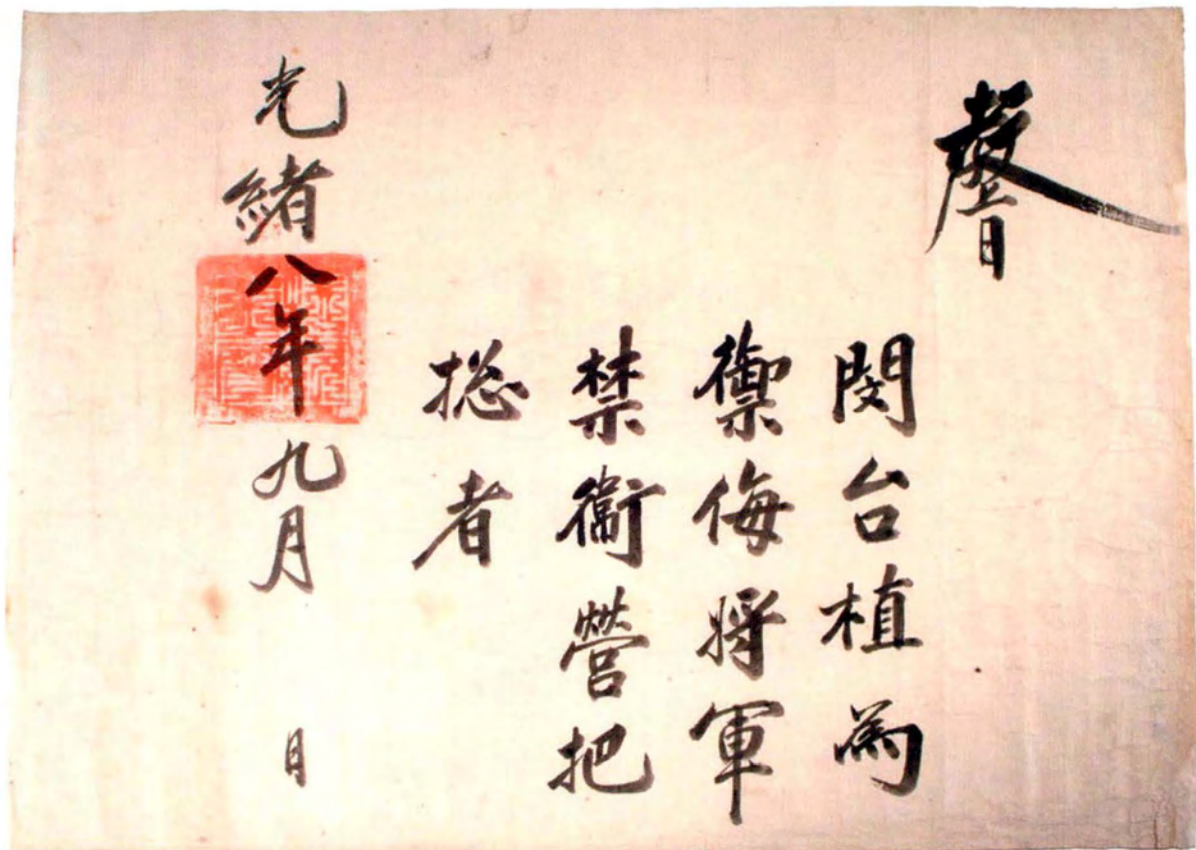 敎旨
閔台植為
禦侮將軍
禁衛營把
捴者
光緒八年九月 日